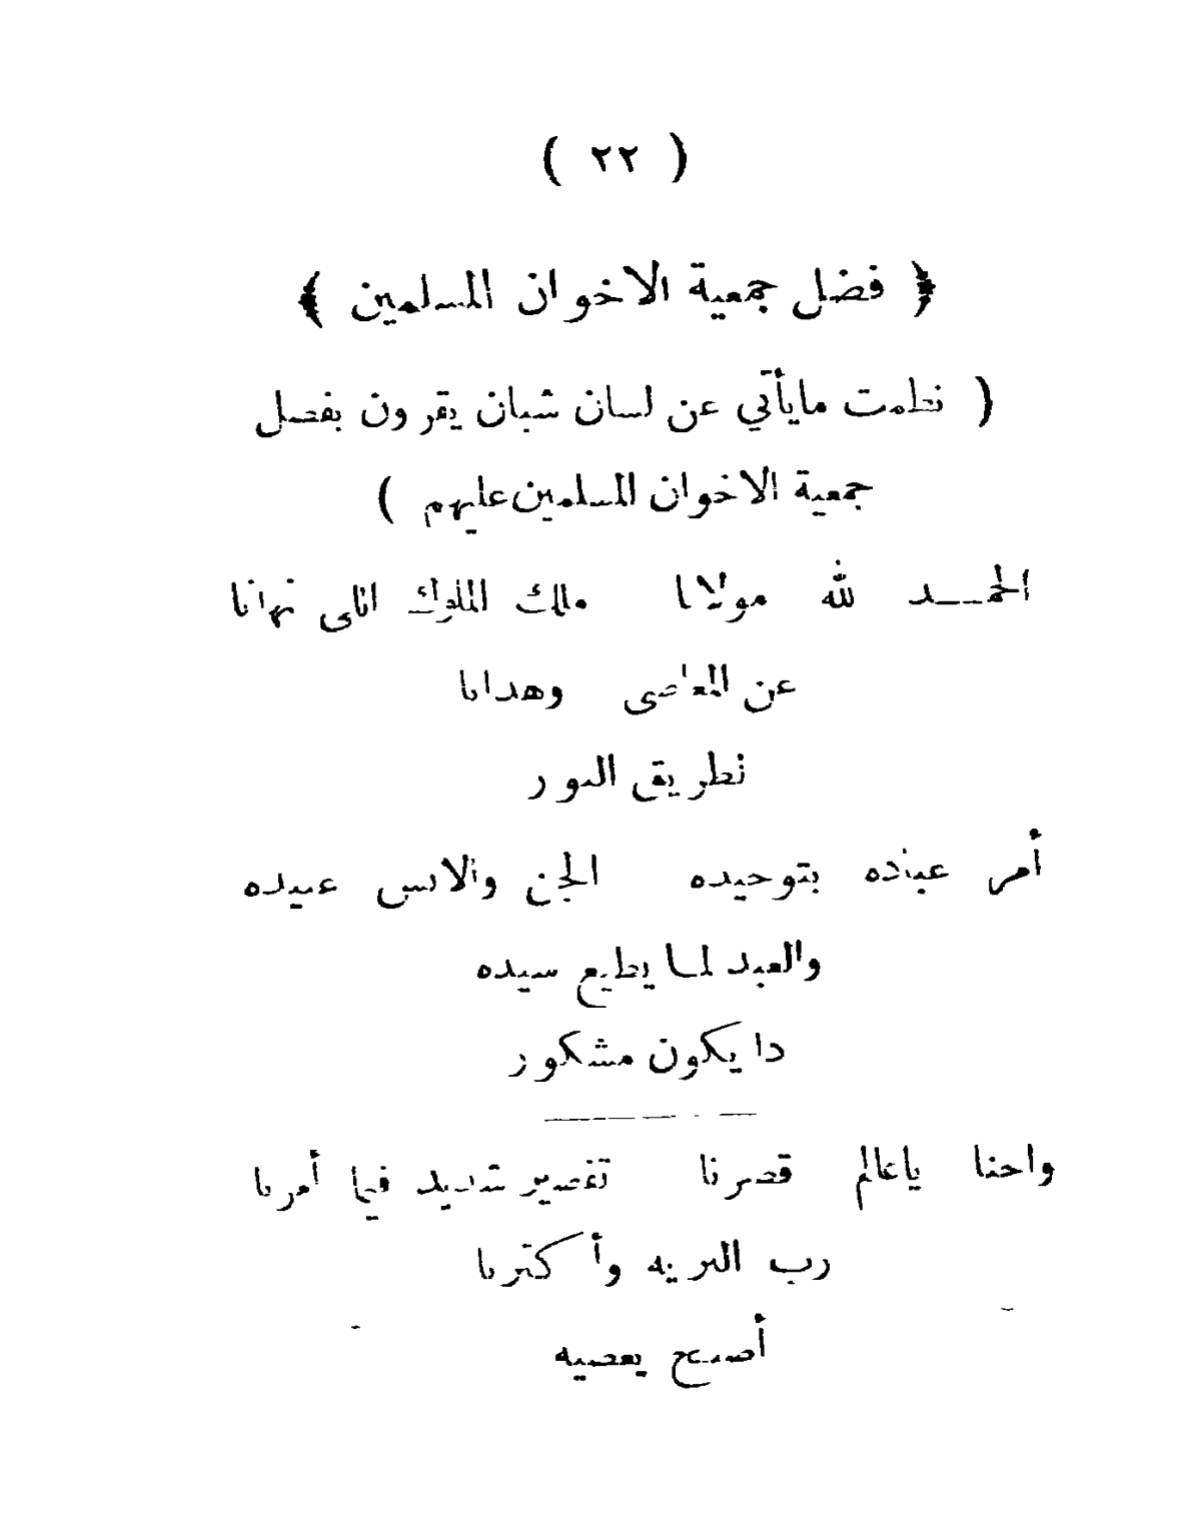 ( ٢٢ )
﴿ فضل جمعية الاخوان المسلمين ﴾
( نظمت مايأتي عن لسان شبان يقرون بفضل
جمعية الاخوان المسلمين عليهم )
الحمـــد لله مولانا ملك الملوك اللى نهانا
عن المعاصى وهدانا
لطريق النور
أمر عباده بتوحيده الجن والانس عبيده
والعبد لمـا يطيع سيده
دا يكون مشكور
واحنا ياعالم قصرنا تقصير شديد فيما أمرنا
رب البريه وأكترنا
أصبح يعصيه